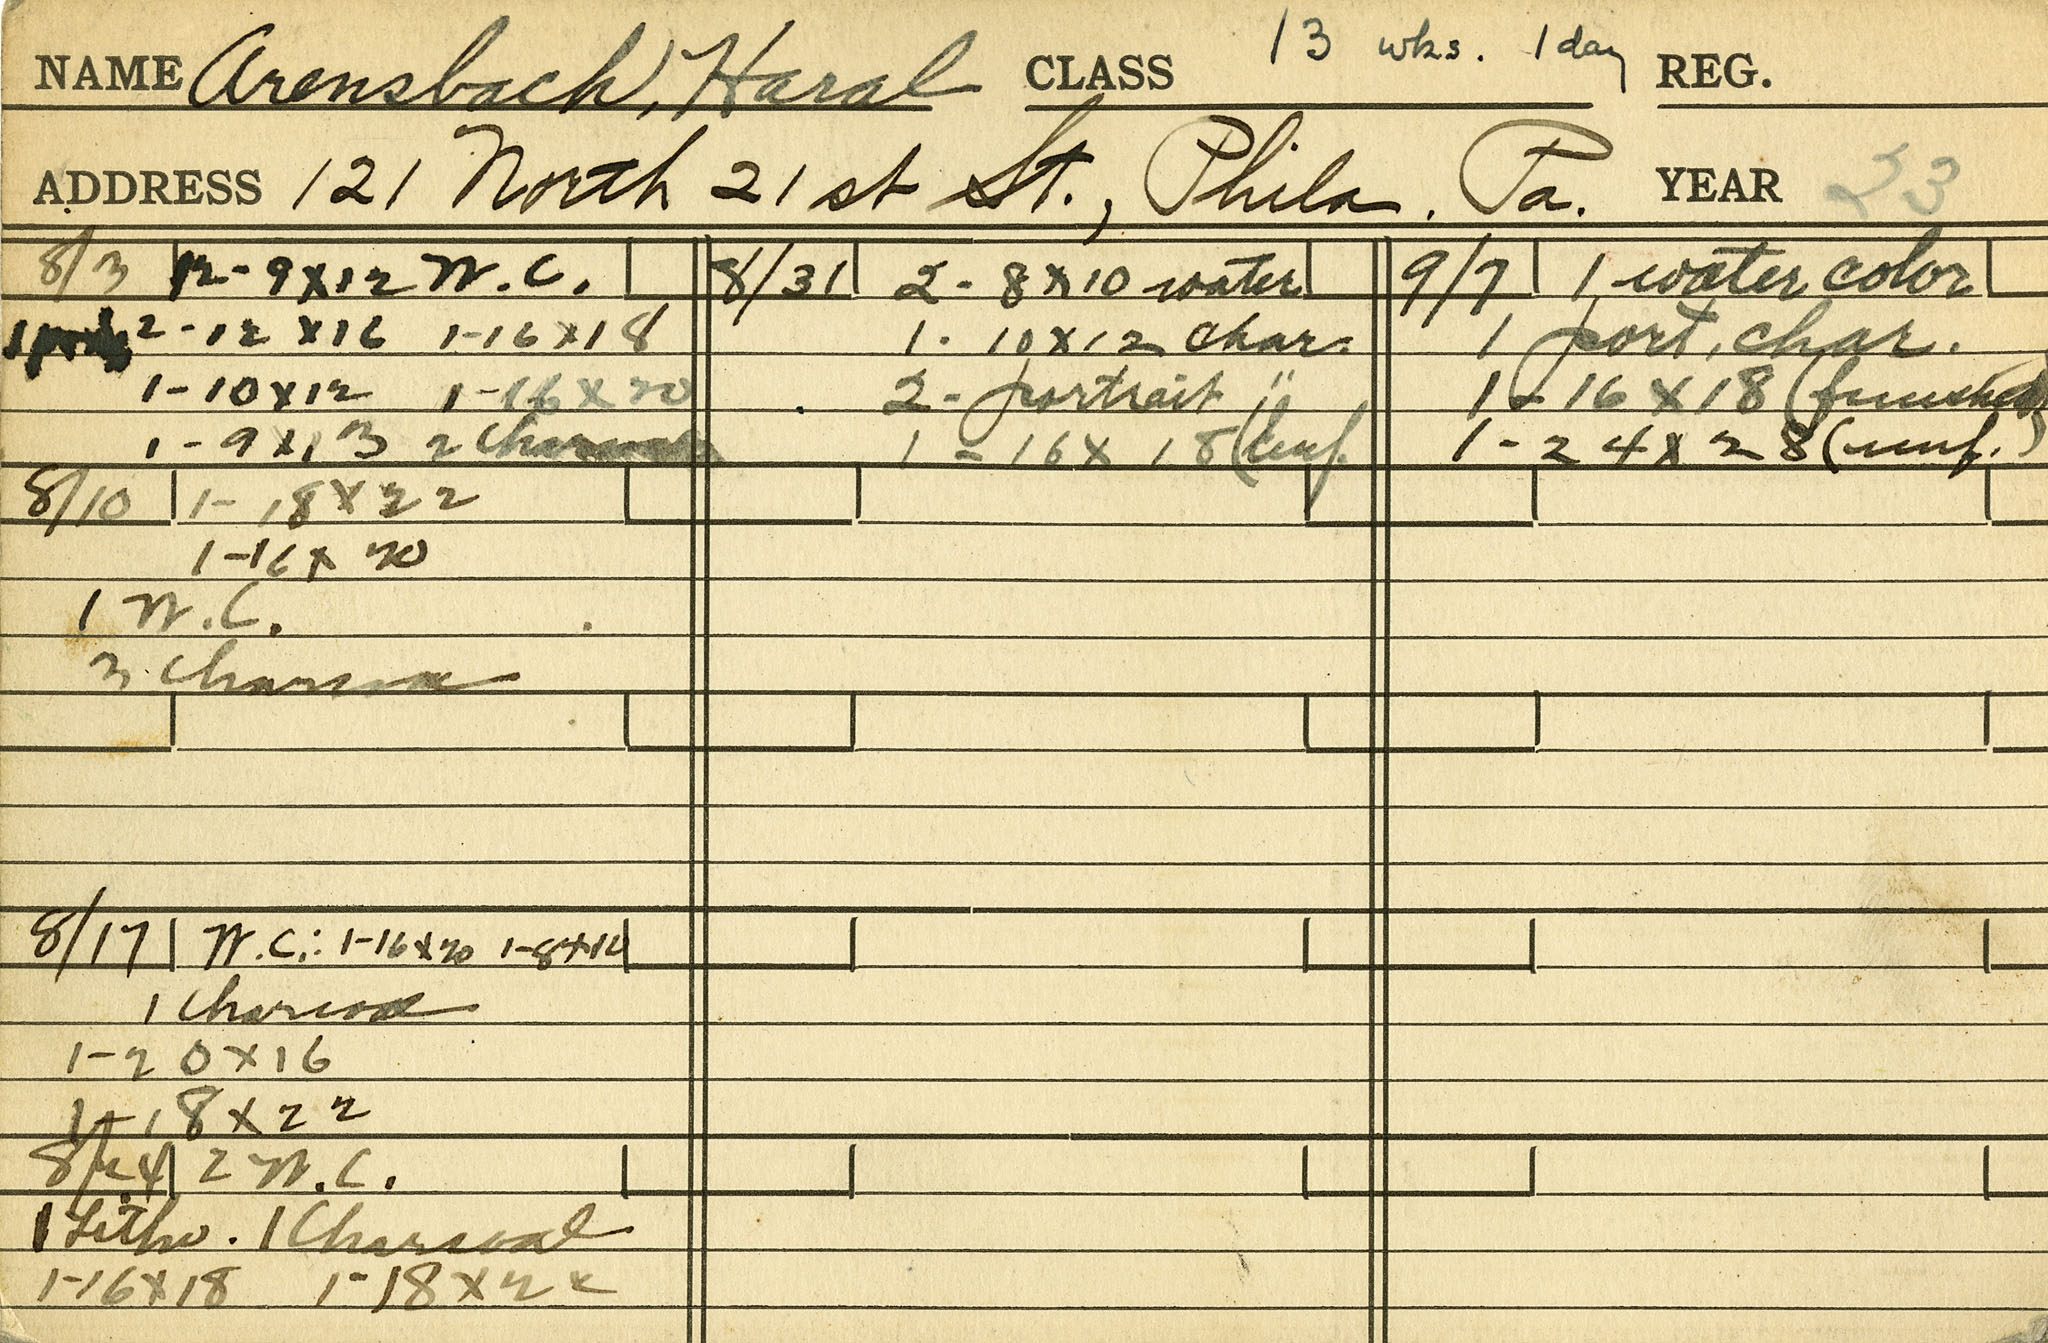 NAME Arensbach, Haral CLASS 13 wks. 1 day REG.
ADDRESS 121 North 21st St., Phila. Pa. YEAR 23
8/3 12-9x12 W.C.
2-12x16 1-16x18
1-10x12 1-16x20
1-9x13 2 Charcoal
8/10 1-18x22
1-16x20
1 W.C.
3 Charcoal
8/17 W.C.: 1-16x20 1-8x10
1 Charcoal
1-20x16
1-18x22
8/24 2 W.C.
1 Litho. 1 Charcoal
1-16x18 1-18x22
8/31 2-8x10 water
1-10x12 char.
2-portrait "
1-16x18 (unf.
9/7 1 water color
1 port. char.
1-16x18 (finished)
1-24x28 (unf.)